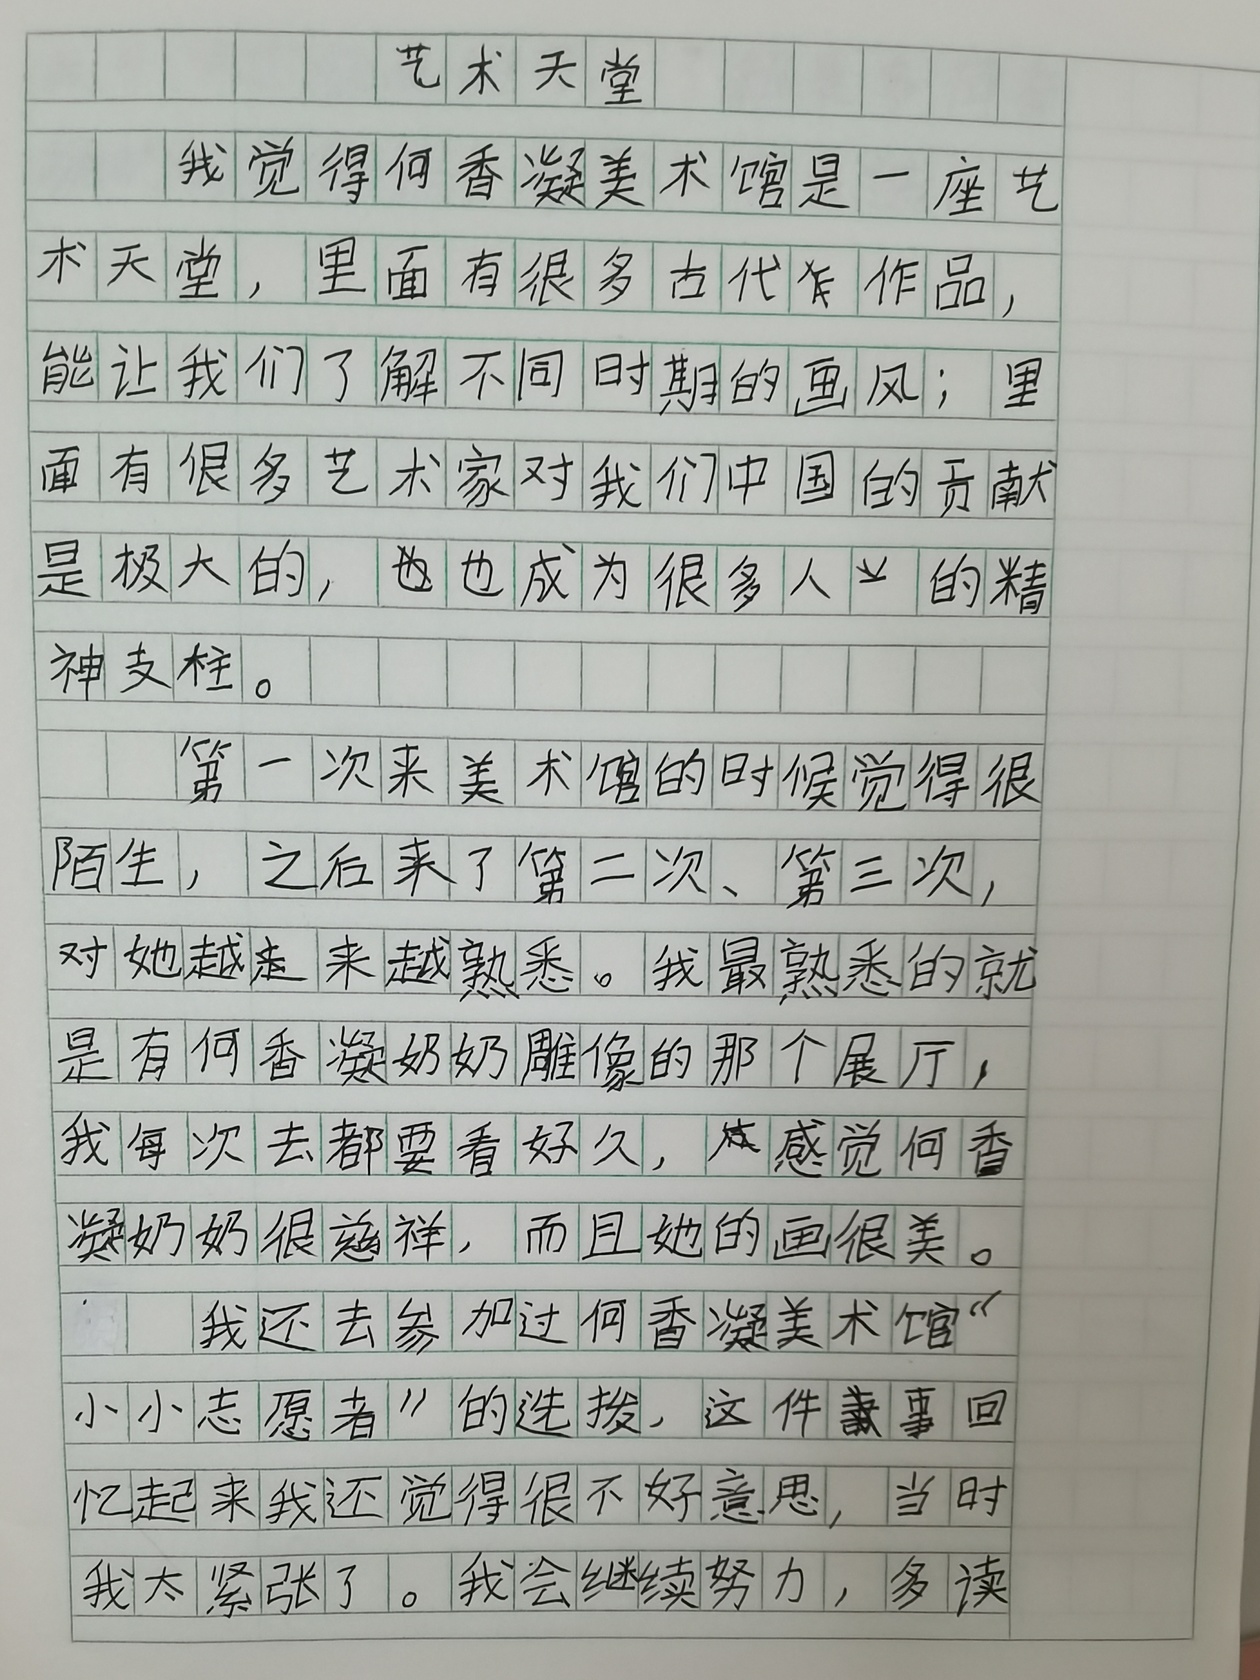 艺术天堂
我觉得何香凝美术馆是一座艺
术天堂，里面有很多古代作品，
能让我们了解不同时期的画风；里
面有很多艺术家对我们中国的贡献
是极大的，也成为很多人的精
神支柱。
第一次来美术馆的时候觉得很
陌生，之后来了第二次、第三次，
对她越走来越熟悉。我最熟悉的就
是有何香凝奶奶雕像的那个展厅，
我每次去都要看好久，感觉何香
凝奶奶很慈祥，而且她的画很美。
我还去参加过何香凝美术馆“
小小志愿者”的选拨，这件事回
忆起来我还觉得很不好意思，当时
我太紧张了。我会继续努力，多读